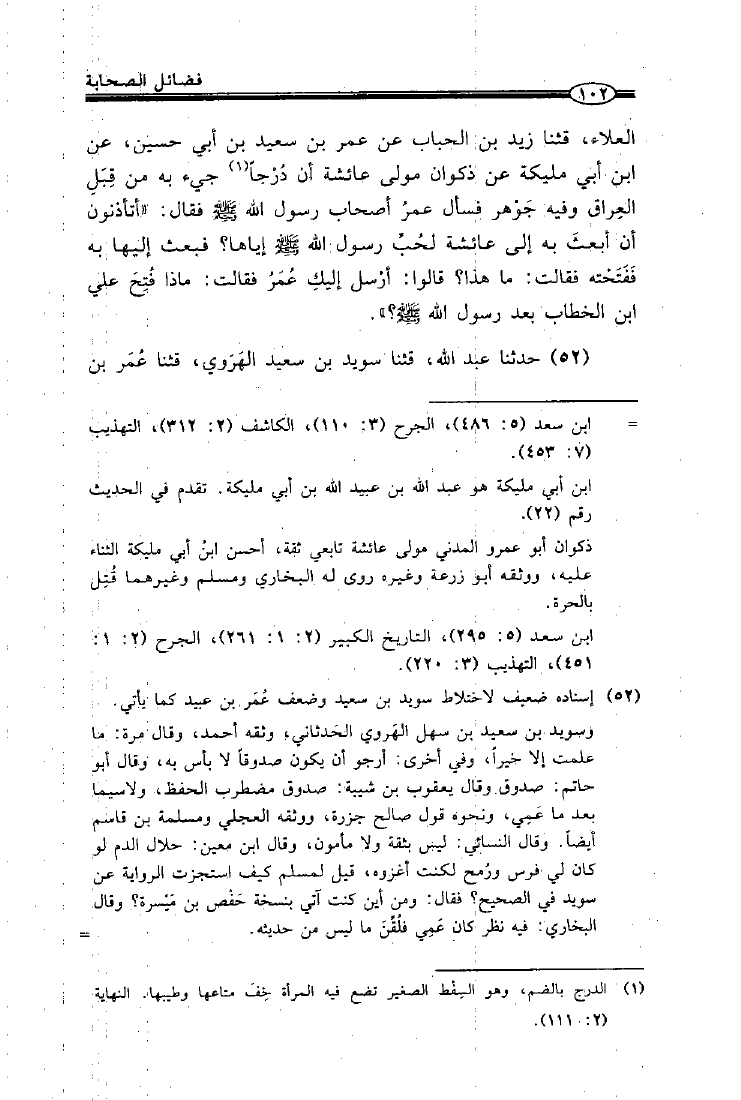 فضائل الصحابة
١٠٢
العلاء، قثنا زيد بن الحباب عن عمر بن سعيد بن أبي حسين، عن
ابن أبي مليكة عن ذكوان مولى عائشة أن دُرْجاً(١) جيء به من قِبَلِ
العراق وفيه جَوْهر فسأل عمرُ أصحاب رسول الله ﷺ فقال: «أتأذنون
أن أبعثَ به إلى عائشة لحُبِّ رسول الله ﷺ إياها؟ فبعث إليها به
فَفَتَحْته فقالت: ما هذا؟ قالوا: أرْسل إليكِ عُمَرُ فقالت: ماذا فُتِحَ علي
ابن الخطاب بعد رسول الله ﷺ؟».
(٥٢) حدثنا عبد الله، قثنا سويد بن سعيد الهَرَوي، قثنا عُمَر بن
= ابن سعد (٥: ٤٨٦)، الجرح (٣: ١١٠)، الكاشف (٢: ٣١٢)، التهذيب
(٧: ٤٥٣).
ابن أبي مليكة هو عبد الله بن عبيد الله بن أبي مليكة. تقدم في الحديث
رقم (٢٢).
ذكوان أبو عمرو المدني مولى عائشة تابعي ثقة، أحسن ابنُ أبي مليكة الثناء
عليه، ووثقه أبو زرعة وغيره روى له البخاري ومسلم وغيرهما قُتِل
بالحرة.
ابن سعد (٥: ٢٩٥)، التاريخ الكبير (٢: ١: ٢٦١)، الجرح (٢: ١:
٤٥١)، التهذيب (٣: ٢٢٠).
(٥٢) إسناده ضعيف لاختلاط سويد بن سعيد وضعف عُمَر بن عبيد كما يأتي.
وسويد بن سعيد بن سهل الهَروي الحَدثاني، وثقه أحمد، وقال مرة: ما
علمت إلا خيراً، وفي أخرى: أرجو أن يكون صدوقاً لا بأس به، وقال أبو
حاتم: صدوق وقال يعقوب بن شيبة: صدوق مضطرب الحفظ، ولاسيما
بعد ما عَمِي، ونحوه قول صالح جزرة، ووثقه العجلي ومسلمة بن قاسم
أيضاً. وقال النسائي: ليس بثقة ولا مأمون، وقال ابن معين: حلال الدم لو
كان لي فرس ورُمح لكنت أغزوه، قيل لمسلم كيف استجزت الرواية عن
سويد في الصحيح؟ فقال: ومن أين كنت آتي بنسخة حَفْص بن مَيْسرة؟ وقال
البخاري: فيه نظر كان عَمِي فلُقِّنَ ما ليس من حديثه. =
(١) الدرج بالضم، وهو السِفْط الصغير تضع فيه المرأة خِفَ متاعها وطيبها. النهاية
(٢: ١١١).